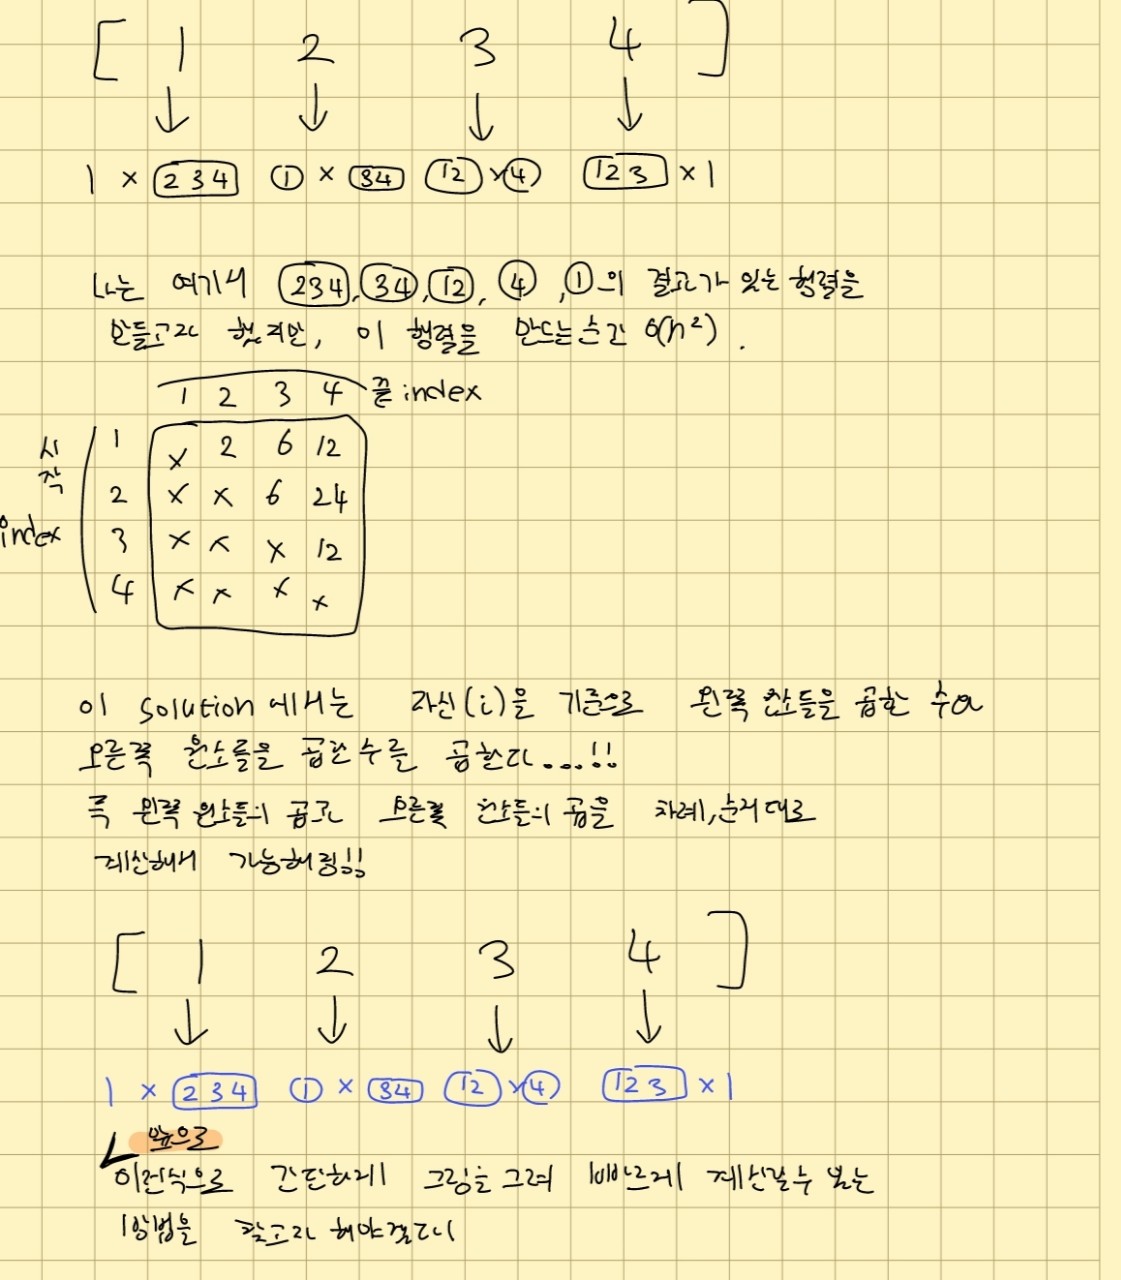 [ 1 2 3 4 ]
↓ ↓ ↓ ↓
1 × 2 3 4 1 × 34 12 × 4 12 3 × 1
나는 여기서 234, 34, 12, 4, 1의 결과가 있는 행렬을
만들고자 했지만, 이 행렬을 만드는순간 O(n²).
1 2 3 4 끝 index
시작 index
1 × 2 6 12
2 × × 6 24
3 × × × 12
4 × × × ×
이 solution에서는 자신(i)을 기준으로 왼쪽 원소들을 곱한 수와
오른쪽 원소들을 곱한수를 곱한다...!!
즉 왼쪽 원소들의 곱과 오른쪽 원소들의 곱을 차례,순서대로
계산해서 가능해짐!!
[ 1 2 3 4 ]
↓ ↓ ↓ ↓
1 × 2 3 4 1 × 34 12 × 4 12 3 × 1
앞으로
이런식으로 간단하게 그림을 그려 빠르게 계산할수 있는
방법을 찾고자 해야겠다